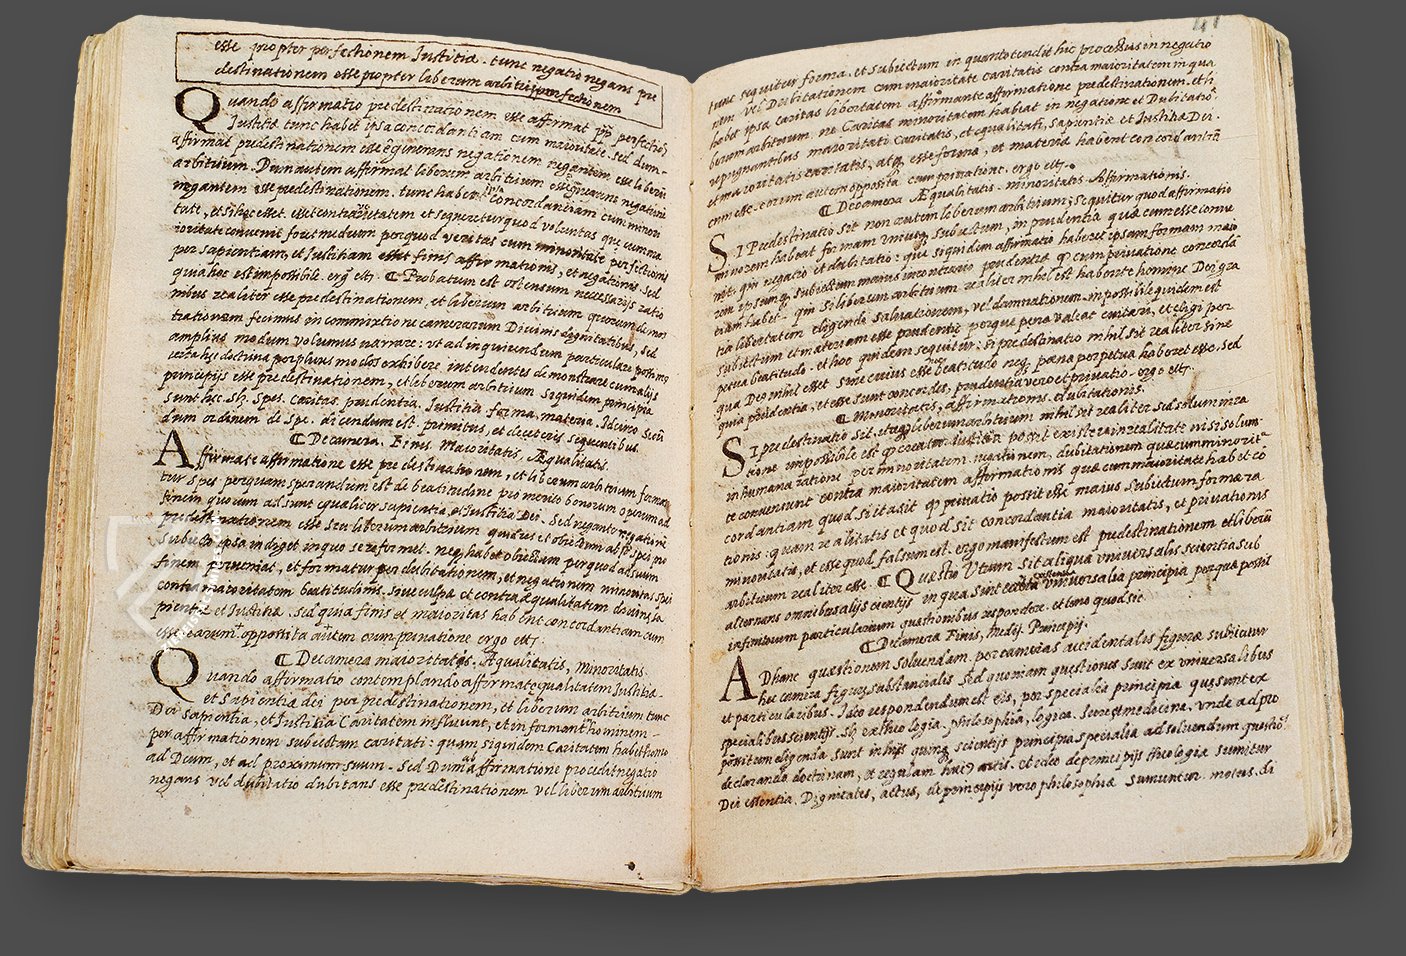 esse propter perfectionem Justitiæ. tunc negatio negans præ
destinationem esse propter liberum arbitrium perfectionem
Quando affirmatio predestinationem esse affirmat ppter perfectio
Justitiæ tunc habet ipsa concordantiam cum maioritate. Sed dum
affirmat predestinationem esse generans negationem negantem esse liberum
arbitrium. Dum autem affirmat liberum arbitrium esse generans negationem
negantem esse predestinationem. tunc habent ipsa Concordantiam cum minori
tate, et si hic esset esset contrarietatem et sequeretur quod voluntas quæ cum ma
ioritate convenit foret medium per quod veritas cum minoritate perfectionis
per sapientiam, et Justitiam esset finis affirmationis, et negationis. Sed
quia hoc est impossibile. ergo etc. ¶ Probatum est ostensum necessarijs ratio
nibus realiter esse predestinationem, et liberum arbitrium quorum demons
trationem fecimus in commixtione camerarum Divinis dignitatibus, Sed
amplius modum volumus narrare: ut ad inquirendum particulare possimus
verum hec doctrina per plures modos exhibere, intendentes demonstrare cum alijs
principijs esse predestinationem, et liberum arbitrium Siquidem principia
sunt hec. Sh. Spes. Caritas. prudentia, Justitia forma, materia. Idcirco Secun
dum ordinem de Spe. dicendum est. primitus, et de ceteris sequentibus.
¶ De camera. Finis. Maioritatis, Æqualitatis.
Affirmate affirmatione esse predestinationem, et liberum arbitrium forma
tur Spes per quam sperandum est de beatitudine pro merito bonorum operum ad
finem quorum adsunt equaliter sapientia, et Justitia Dei. Sed negante negatione
predestinationem esse seu liberum arbitrium quibus et obiectum abest Spei no
Subiecto ipsa indiget in quo se reformet. neque habet obiectum per quod ad suum
finem perveniat, et formatur per dubitationem, et negationem minoritas Spei
contra maioritatem beatitudinis, sive culpa et contra æqualitatem divina sa
pientiæ et Justitiæ. Sed quia finis et maioritas habent concordantiam cum
esse earum opposita autem cum privatione ergo etc.
¶ De camera maioritatis. Æqualitatis, minoritatis.
Quando affirmatio contemplando affirmat equalitatem Justitiæ
et Sapientiæ dei per predestinationem, et liberum arbitrium tunc
Dei Sapientia, et Justitia Caritatem influunt, et informant hominem
per affirmationem subiectam caritati: quam siquidem Caritatem habet homo
ad Deum, et ad proximum suum. Sed Dum ab affirmatione procedit negatio
negans vel dubitatio dubitans esse predestinationem vel liberum arbitrium
41
tunc sequitur forma. et Subiectum in quanto tendit hic processus in negatio
nem vel Dubitationem cum maioritate caritatis contra maioritatem in qua
habet ipsa caritas libertatem affirmante affirmatione predestinationem. et li
berum arbitrium. ne Caritas minoritatem habeat in negatione et Dubitatione
repugnantibus maioritati caritatis, et equalitati, Sapientiæ et Justitiæ Dei.
et maioritatis caritatis, atque esse forma, et materia habent concordantiam
cum esse. eorum autem opposita cum privatione. ergo etc.
¶ De camera Æqualitatis. minoritatis. Affirmationis.
SI Predestinatio sit non autem liberum arbitrium; sequitur quod affirmatio
minorem habeat formam Minusque subiectum, in prudentia quæ cum esse conve
nit. quam negatio et dubitatio: quia siquidem affirmatio haberet ipsam formam maio
rem ipsumque subiectum maius in contrario prudentiæ quod cum privatione concorda
tiam habet. quoniam Si liberum arbitrium realiter nihil est habente homine Dei gra
tia libertatem eligendi salvationem, vel damnationem. impossibile quidem est
subiectum et materiam esse prudentiæ per quæ pena valeat evitari, et eligi per
petua beatitudo. et hoc quidem sequitur: si predestinatio nihil sit realiter sine
qua Deo nihil esset sine cuius esse beatitudo neque pœna perpetua haberet esse. Sed
quia prudentia. et esse sunt concordes, prudentia vero et privatio. ergo etc.
¶ Minoritatis, affirmationis. dubitationis.
SI predestinatio sit, et liberum arbitrium nihil sit realiter sed solum in ra
tione impossibile est quod creatur Justitia possit existere in realitate nisi solum
in humana ratione per minoritatem. negationem, dubitationem quæ cum minoritate
te conveniunt contra maioritatem affirmationis quæ cum maioritate habet co
cordantiam quod si ita sit quod privatio possit esse maius subiectum formæ ra
tionis: quam realitatis et quod sit concordantia maioritatis, et privationis
minoritatis, et esse quod falsum est. ergo manifestum est predestinationem et liberum
arbitrium realiter esse. ¶ Quæstio Utrum sit aliqua universalis scientia sub
alternans omnibus alijs scientijs in qua sint universalia principia per quæ possit
infinitorum particularium quæstionibus respondere. et teno quod sic
¶ De camera Finis, Medij. Principij.
AD hanc quæstionem solvendam. per camaras accidentalis figuræ subijcitur
hec camera figuræ substancialis Sed quoniam questiones sunt ex universalibus
et particularibus. Ideo respondendum est eis, per specialia principia quæ sunt ex
specialibus scientijs. Sh. ex theologia. philosophia, logica. iure, et medecina, unde ad pro
positum eligenda sunt in hijs quinque scientijs principia specialia ad solvendum quæstio.
declarando doctrinam, et regulam huius artis. et ideo de principijs theologia sumitur
Dei essentia. Dignitates, actus, de principijs vero philosophiæ sumuntur. motus. di